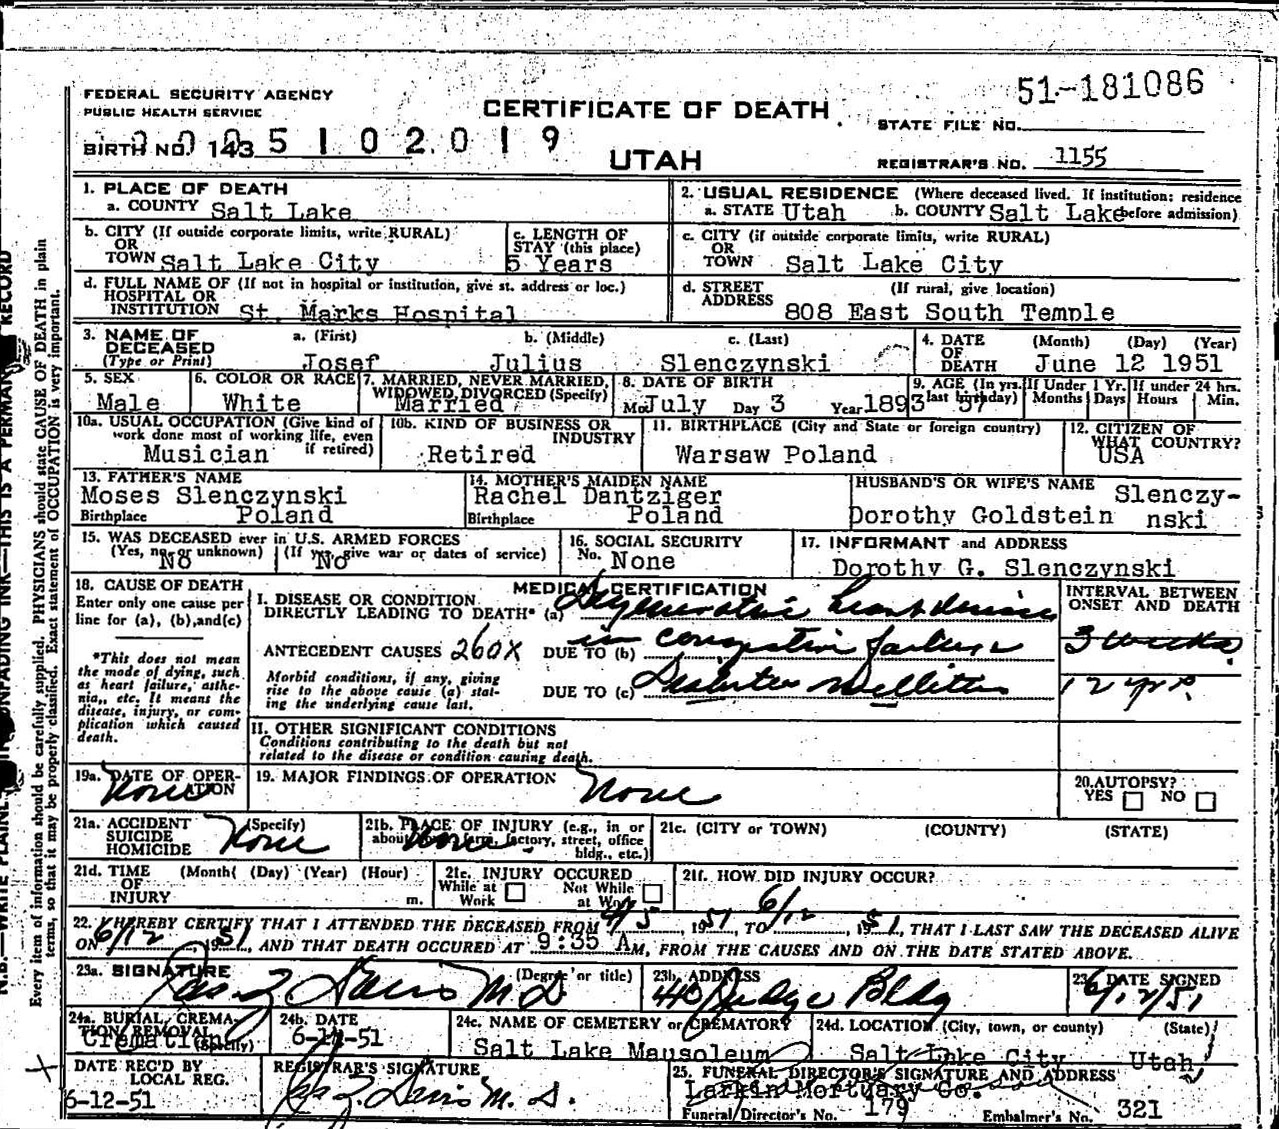 51-181086
FEDERAL SECURITY AGENCY
PUBLIC HEALTH SERVICE
CERTIFICATE OF DEATH
STATE FILE NO.
BIRTH NO. 143 5 1 0 2 0 1 9
UTAH
REGISTRAR'S NO. 1155
1. PLACE OF DEATH
a. COUNTY Salt Lake
2. USUAL RESIDENCE (Where deceased lived. If institution: residence before admission)
a. STATE Utah b. COUNTY Salt Lake
b. CITY (If outside corporate limits, write RURAL)
OR
TOWN Salt Lake City
c. LENGTH OF
STAY (this place)
5 Years
c. CITY (if outside corporate limits, write RURAL)
OR
TOWN Salt Lake City
d. FULL NAME OF (If not in hospital or institution, give st. address or loc.)
HOSPITAL OR
INSTITUTION St. Marks Hospital
d. STREET (If rural, give location)
ADDRESS 808 East South Temple
3. NAME OF DECEASED (Type or Print)
a. (First) b. (Middle) c. (Last)
Josef Julius Slenczynski
4. DATE OF DEATH (Month) (Day) (Year)
June 12 1951
5. SEX
Male
6. COLOR OR RACE
White
7. MARRIED, NEVER MARRIED, WIDOWED, DIVORCED (Specify)
Married
8. DATE OF BIRTH
Mo. July Day 3 Year 1893
9. AGE (In yrs. last birthday) 57
If Under 1 Yr. Months Days
If under 24 hrs. Hours Min.
10a. USUAL OCCUPATION (Give kind of work done most of working life, even if retired)
Musician
10b. KIND OF BUSINESS OR INDUSTRY
Retired
11. BIRTHPLACE (City and State or foreign country)
Warsaw Poland
12. CITIZEN OF WHAT COUNTRY?
USA
13. FATHER'S NAME
Moses Slenczynski
Birthplace Poland
14. MOTHER'S MAIDEN NAME
Rachel Dantziger
Birthplace Poland
HUSBAND'S OR WIFE'S NAME
Dorothy Goldstein Slenczy-
nski
15. WAS DECEASED ever in U.S. ARMED FORCES
(Yes, no, or unknown) (If yes, give war or dates of service)
No No
16. SOCIAL SECURITY
No. None
17. INFORMANT and ADDRESS
Dorothy G. Slenczynski
18. CAUSE OF DEATH
Enter only one cause per
line for (a), (b), and (c)
*This does not mean
the mode of dying, such
as heart failure, asthe-
nia, etc. It means the
disease, injury, or com-
plication which caused
death.
MEDICAL CERTIFICATION
INTERVAL BETWEEN
ONSET AND DEATH
I. DISEASE OR CONDITION
DIRECTLY LEADING TO DEATH* (a) Degenerative heart disease
ANTECEDENT CAUSES 260X DUE TO (b) in congestive failure 3 weeks
Morbid conditions, if any, giving
rise to the above cause (a) stat-
ing the underlying cause last.
DUE TO (c) Diabetes Mellitus 12 yrs.
II. OTHER SIGNIFICANT CONDITIONS
Conditions contributing to the death but not
related to the disease or condition causing death.
19a. DATE OF OPER-
ATION
None
19. MAJOR FINDINGS OF OPERATION
None
20. AUTOPSY?
YES NO
21a. ACCIDENT (Specify)
SUICIDE
HOMICIDE
None
21b. PLACE OF INJURY (e.g., in or
about home, farm, factory, street, office
bldg., etc.)
None
21c. (CITY or TOWN) (COUNTY) (STATE)
21d. TIME (Month) (Day) (Year) (Hour)
OF
INJURY m.
21e. INJURY OCCURED
While at Work Not While at Work
21f. HOW DID INJURY OCCUR?
22. I HEREBY CERTIFY THAT I ATTENDED THE DECEASED FROM 4/5, 1951, TO 6/12, 1951, THAT I LAST SAW THE DECEASED ALIVE
ON 6/12 1951, AND THAT DEATH OCCURED AT 9:35 AM, FROM THE CAUSES AND ON THE DATE STATED ABOVE.
23a. SIGNATURE (Degree or title)
Jas Z Davis M D
23b. ADDRESS
440 Judge Bldg
23c. DATE SIGNED
6/12/51
24a. BURIAL, CREMA-
TION, REMOVAL (Specify)
Cremation
24b. DATE
6-14-51
24c. NAME OF CEMETERY or CREMATORY
Salt Lake Mausoleum
24d. LOCATION (City, town, or county) (State)
Salt Lake City Utah
DATE REC'D BY
LOCAL REG.
6-12-51
REGISTRAR'S SIGNATURE
Jas Z. Davis M. D.
25. FUNERAL DIRECTOR'S SIGNATURE AND ADDRESS
Larkin Mortuary Co.
Funeral Director's No. 179 Embalmer's No. 321
N.B.—WRITE PLAINLY UNFADING INK—THIS IS A PERMANENT RECORD
Every item of information should be carefully supplied. PHYSICIANS should state CAUSE OF DEATH in plain
terms, so that it may be properly classified. Exact statement of OCCUPATION is very important.